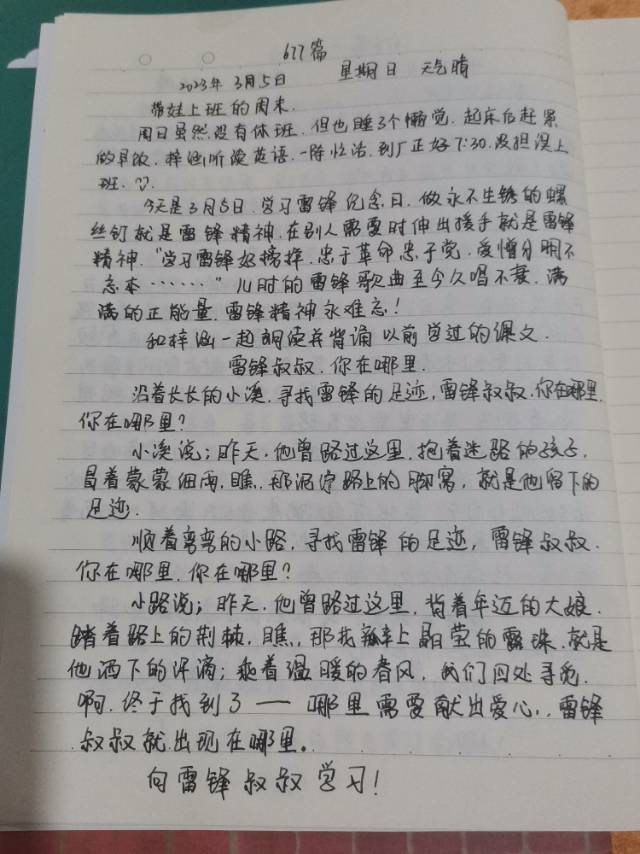 677篇
2023年3月5日 星期日 天气晴
带娃上班的周末.
周日虽然没有休班.但也睡了个懒觉.起床后赶紧
做早饭.梓涵听读英语.一阵忙活.到厂正好7:30.没担误上
班.
今天是3月5日.学习雷锋纪念日.做永不生锈的螺
丝钉就是雷锋精神.在别人需要时伸出援手就是雷锋
精神."学习雷锋好榜样.忠于革命忠于党.爱憎分明不
忘本……"儿时的雷锋歌曲至今久唱不衰.满
满的正能量.雷锋精神永难忘!
和梓涵一起朗读并背诵以前学过的课文.
雷锋叔叔.你在哪里.
沿着长长的小溪.寻找雷锋的足迹,雷锋叔叔.你在哪里.
你在哪里?
小溪说;昨天.他曾路过这里.抱着迷路的孩子.
冒着蒙蒙细雨.瞧.那泥泞路上的脚窝,就是他留下的
足迹.
顺着弯弯的小路.寻找雷锋的足迹,雷锋叔叔.
你在哪里.你在哪里?
小路说;昨天.他曾路过这里.背着年迈的大娘.
踏着路上的荆棘.瞧.那花瓣上晶莹的露珠.就是
他洒下的汗滴;乘着温暖的春风,我们四处寻觅.
啊.终于找到了——哪里需要献出爱心,.雷锋
叔叔就出现在哪里。
向雷锋叔叔学习!